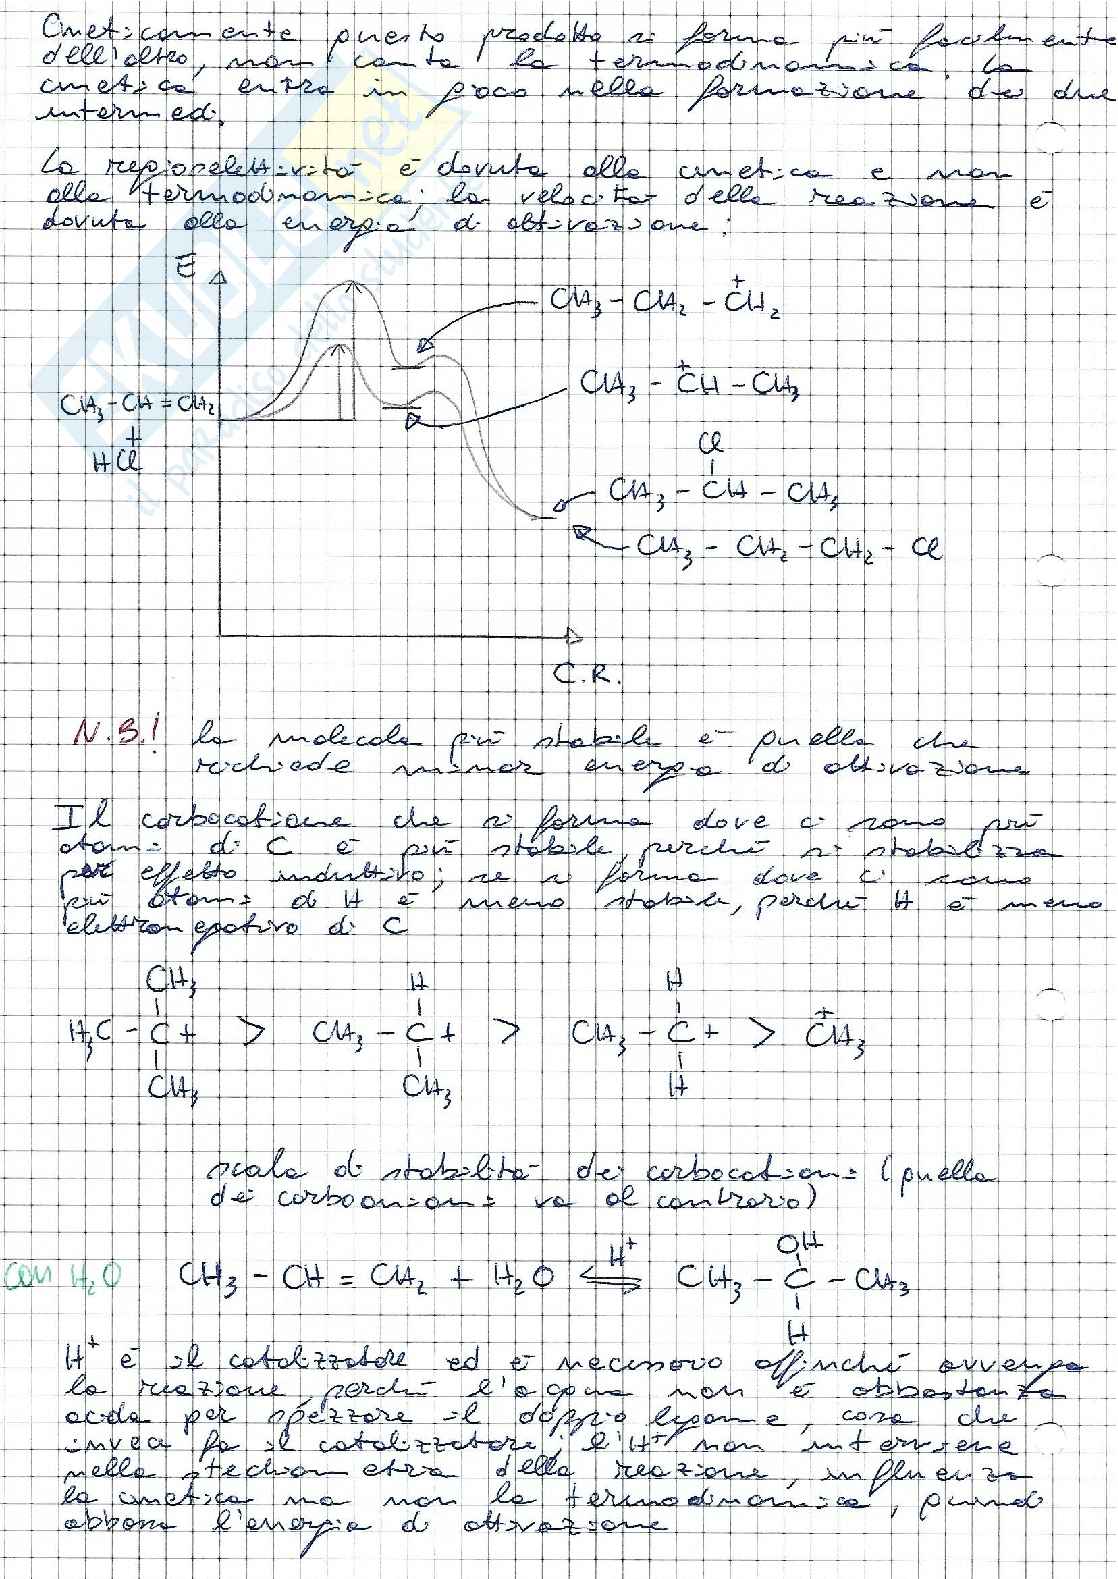 Cineticamente questo prodotto si forma più facilmente
dell'altro, non conta la termodinamica. La
cinetica entra in gioco nella formazione dei due
intermedi.
La regioselettività è dovuta alla cinetica e non
alla termodinamica; la velocità della reazione è
dovuta alla energia di attivazione:
E
CH3 - CH2 - C+H2
CH3 - C+H - CH3
CH3 - CH = CH2
+
HCl
Cl
CH3 - CH - CH3
CH3 - CH2 - CH2 - Cl
C.R.
N.B.! la molecola più stabile è quella che
richiede minor energia di attivazione
Il carbocatione che si forma dove ci sono più
atomi di C è più stabile, perché si stabilizza
per effetto induttivo; se si forma dove ci sono
più atomi di H è meno stabile, perché H è meno
elettronegativo di C
CH3 H H
H3C - C+ > CH3 - C+ > CH3 - C+ > C+H3
CH3 CH3 H
scala di stabilità dei carbocationi (quella
dei carboanioni va al contrario)
OH
con H2O CH3 - CH = CH2 + H2O ⇌ H+ CH3 - C - CH3
H
H+ è il catalizzatore ed è necessario affinché avvenga
la reazione, perché l'acqua non è abbastanza
acida per spezzare il doppio legame, cosa che
invece fa il catalizzatore; l'H+ non interviene
nella stechiometria della reazione, influenza
la cinetica ma non la termodinamica, quindi
abbassa l'energia di attivazione